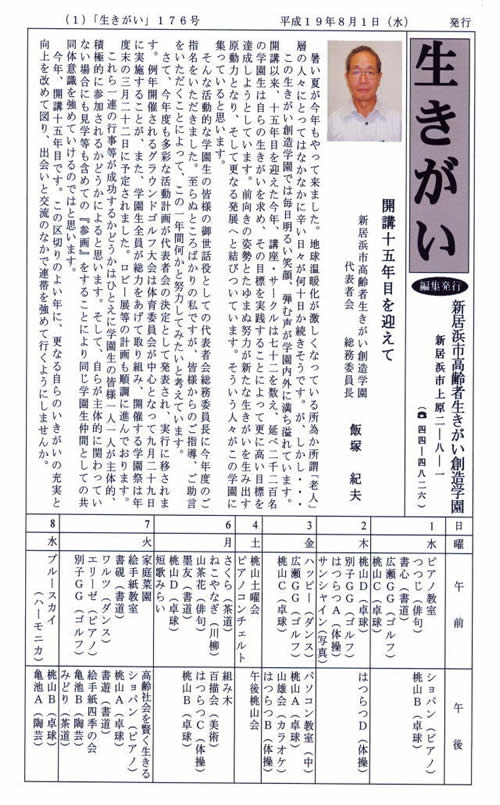 (1)「生きがい」176号
平成19年8月1日(水)
発行
生きがい
編集発行
新居浜市高齢者生きがい創造学園
新居浜市上原二―八―一
(☎四四―四八二六)
開講十五年目を迎えて
新居浜市高齢者生きがい創造学園
代表者会 総務委員長
飯塚 紀夫
暑い夏が今年もやって来ました。地球温暖化が激しくなっている所為か所謂「老人」
層の人々にとってはなかなかに辛い日々が何十日か続きそうです。が、しかし・・・
この生きがい創造学園では毎日明るい笑顔、弾む声が学園内外に満ち溢れています。
開講以来、十五年目を迎えた今年、講座・サークルは七十二を数え、延べ二千二百名
の学園生は自らの生きがいを求め、その目標を実践することによって更に高い目標を
達成しようとしています。前向きの姿勢とたゆまぬ努力が新たな生きがいを生み出す
原動力となり、そして更なる発展へと結びついています。そういう人々がこの学園に
集っていると思います。
そんな活動的な学園生の皆様の御世話役としての代表者会総務委員長に今年度のご
指名をいただきました。至らぬところばかりの私ですが、皆様からのご指導、ご助言
をいただくことによって、この一年間何かと努力してみたいと考えています。
さて、今年度も多彩な活動計画が代表者会の決定として発表され、実行に移されま
す。例年開催されるグラウンドゴルフ大会は体育委員会が中心となって九月二十九日
に実施することが、また、学園生全員が総力をあげて取り組み、開催する学園祭は年
度末の三月二十二日に予定されました。ロビー展等の計画も順調に進んでおります。
これら一連の行事等が成功するかどうかはひとえに学園生の皆様一人一人が主体的、
積極的に参加されるかどうかによると思います。そして、自らが主体的に関わってい
ない場合にも見学等も含めての『参画』をすることにより同じ学園生仲間としての共
同体意識を強めていけるのではと思います。
今年、開講十五年目です。この区切りのよい年に、更なる自らのいきがいの充実と
向上を改めて図り、出会いと交流のなかで連帯を強めて行くようにしませんか。
日 曜 午前 午後
1 水
ピアノ教室
つつじ(俳句)
書心(書道)
広瀬GG(ゴルフ)
桃山C(卓球)
ショパン(ピアノ)
桃山B(卓球)
2 木
桃山D(卓球)
別子GG(ゴルフ)
はつらつA(体操)
サンシャイン(写真)
はつらつD(体操)
3 金
ハッピー(ダンス)
広瀬GG(ゴルフ)
桃山C(卓球)
パソコン教室(中)
桃山A(卓球)
山雄会(カラオケ)
はつらつB(体操)
4 土
桃山土曜会
ピアノコンチェルト
午後桃山会
6 月
さくら(茶道)
ねこやなぎ(川柳)
山茶花(俳句)
墨友(書道)
桃山D(卓球)
短歌みらい
組み木
百描会(美術)
はつらつC(体操)
桃山B(卓球)
7 火
家庭菜園
絵手紙教室
書硯(書道)
ワルツ(ダンス)
エリーゼ(ピアノ)
別子GG(ゴルフ)
高齢社会を賢く生きる
ショパン(ピアノ)
桃山A(卓球)
書遊(書道)
絵手紙四季の会
亀池B(陶芸)
みどり(茶道)
8 水
ブルースカイ
(ハーモニカ)
桃山B(卓球)
亀池A(陶芸)